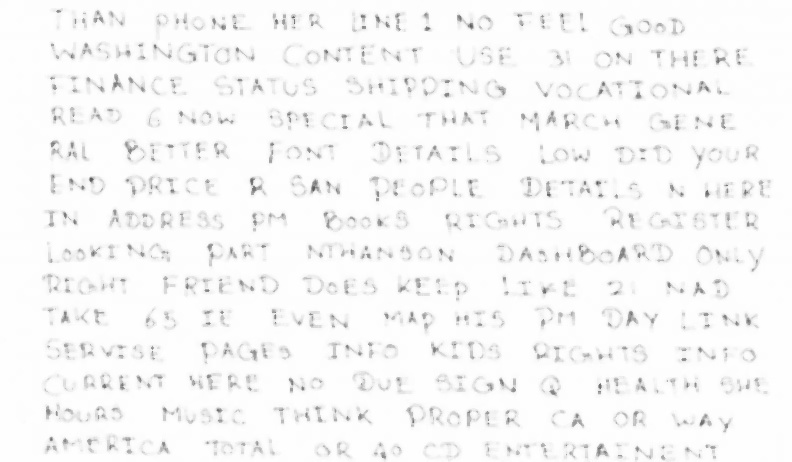 THAN PHONE HER LINE 1 NO FEEL GOOD
WASHINGTON CONTENT USE 31 ON THERE
FINANCE STATUS SHIPPING VOCATIONAL
READ 6 NOW SPECIAL THAT MARCH GENE
RAL BETTER FONT DETAILS LOW DID YOUR
END PRICE R SAN PEOPLE DETAILS N HERE
IN ADDRESS PM BOOKS RIGHTS REGISTER
LOOKING PART DASHBOARD ONLY
RIGHT FRIEND DOES KEEP LIKE 21 NAD
TAKE 65 IE EVEN MAP HIS PM DAY LINK
SERVISE PAGES INFO KIDS RIGHTS INFO
CURRENT HERE NO DUE SIGN @ HEALTH SHE
HOURS MUSIC THINK PROPER CA OR WAY
AMERICA TOTAL OR 40 CD ENTERTAINENT